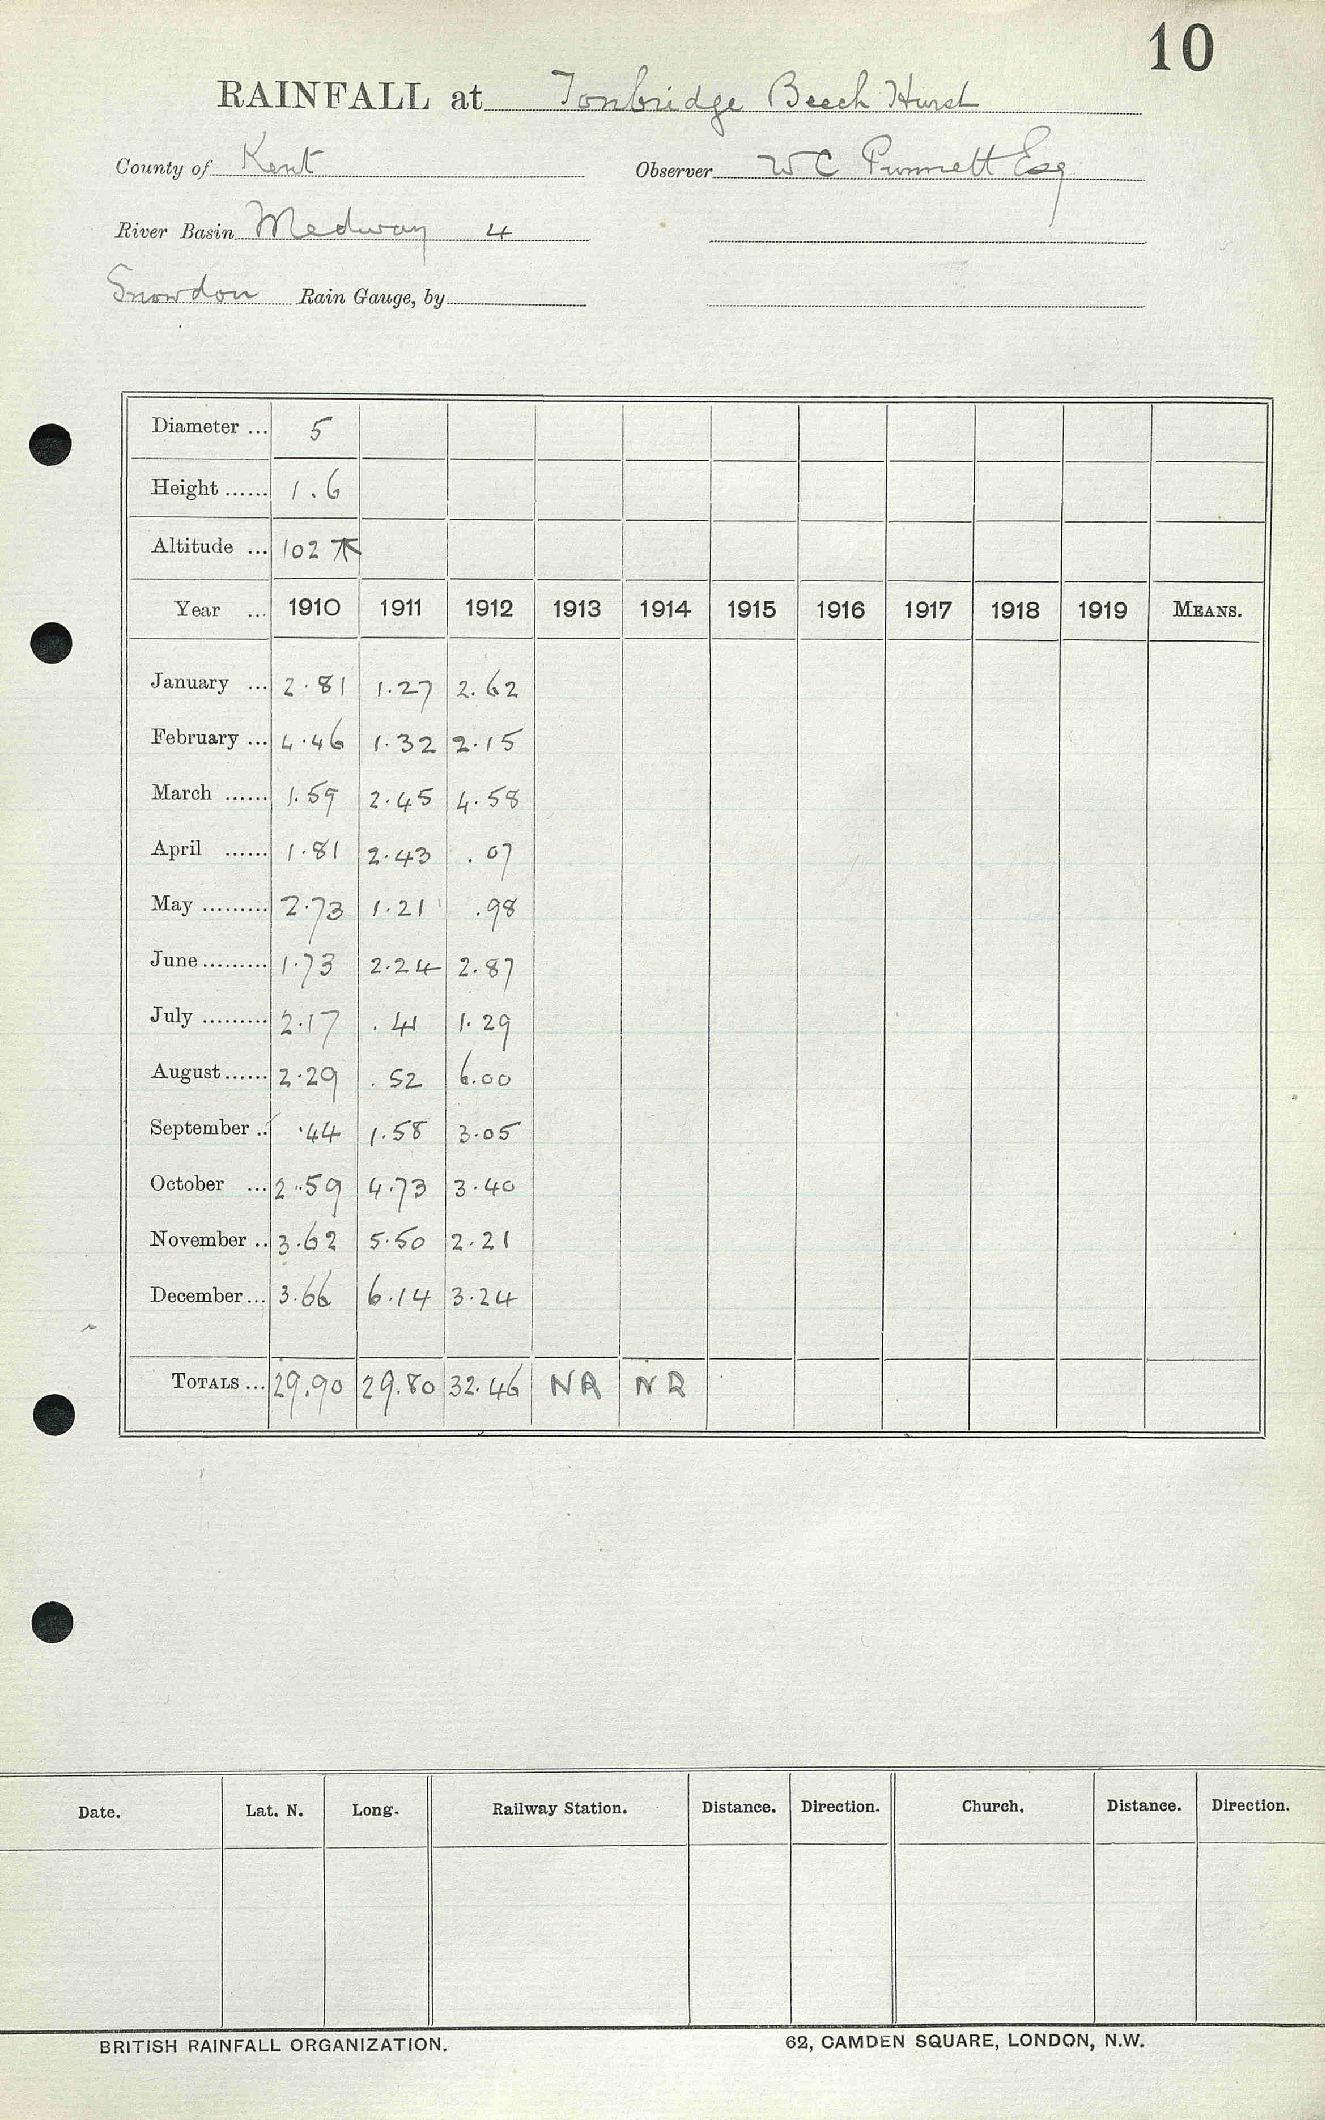 10
RAINFALL at Tonbridge Beech Hurst
County of Kent Observer W C Punnett Esq
River Basin Medway 4
Snowdon Rain Gauge, by
Diameter ... 5
Height ...... 1.6
Altitude ... 102
Year ... 1910 1911 1912 1913 1914 1915 1916 1917 1918 1919 MEANS.
January ... 2.81 1.27 2.62
February ... 4.46 1.32 2.15
March ...... 1.59 2.45 4.58
April ...... 1.81 2.43 .07
May ......... 2.73 1.21 .98
June ......... 1.73 2.24 2.87
July ......... 2.17 .41 1.29
August ...... 2.29 .52 6.00
September .. .44 1.58 3.05
October ... 2.59 4.73 3.40
November .. 3.62 5.50 2.21
December ... 3.66 6.14 3.24
TOTALS ... 29.90 29.80 32.46 NR NR
Date. Lat. N. Long. Railway Station. Distance. Direction. Church. Distance. Direction.
BRITISH RAINFALL ORGANIZATION. 62, CAMDEN SQUARE, LONDON, N.W.